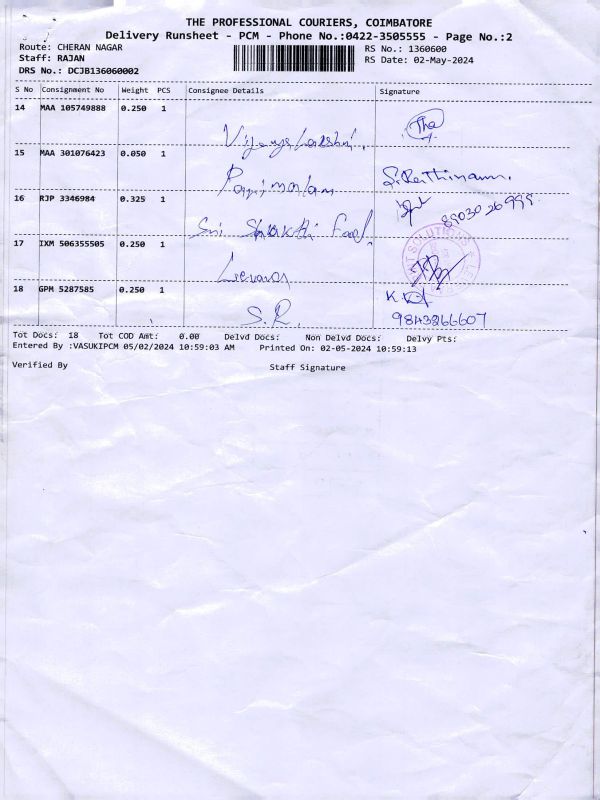 THE PROFESSIONAL COURIERS, COIMBATORE
Delivery Runsheet - PCM - Phone No.:0422-3505555 - Page No.:2
Route: CHERAN NAGAR
RS No.: 1360600
Staff: RAJAN
RS Date: 02-May-2024
DRS No.: DCJB136060002
S No Consignment No Weight PCS Consignee Details Signature
14 MAA 105749888 0.250 1
15 MAA 301076423 0.050 1
16 RJP 3346984 0.325 1
89030 26999
Sri Shakthi
17 IXM 506355505 0.250 1
18 GPM 5287585 0.250 1
S.R.
9843866607
Tot Docs: 18 Tot COD Amt: 0.00 Delvd Docs: Non Delvd Docs: Delvy Pts:
Entered By :VASUKIPCM 05/02/2024 10:59:03 AM Printed On: 02-05-2024 10:59:13
Verified By Staff Signature